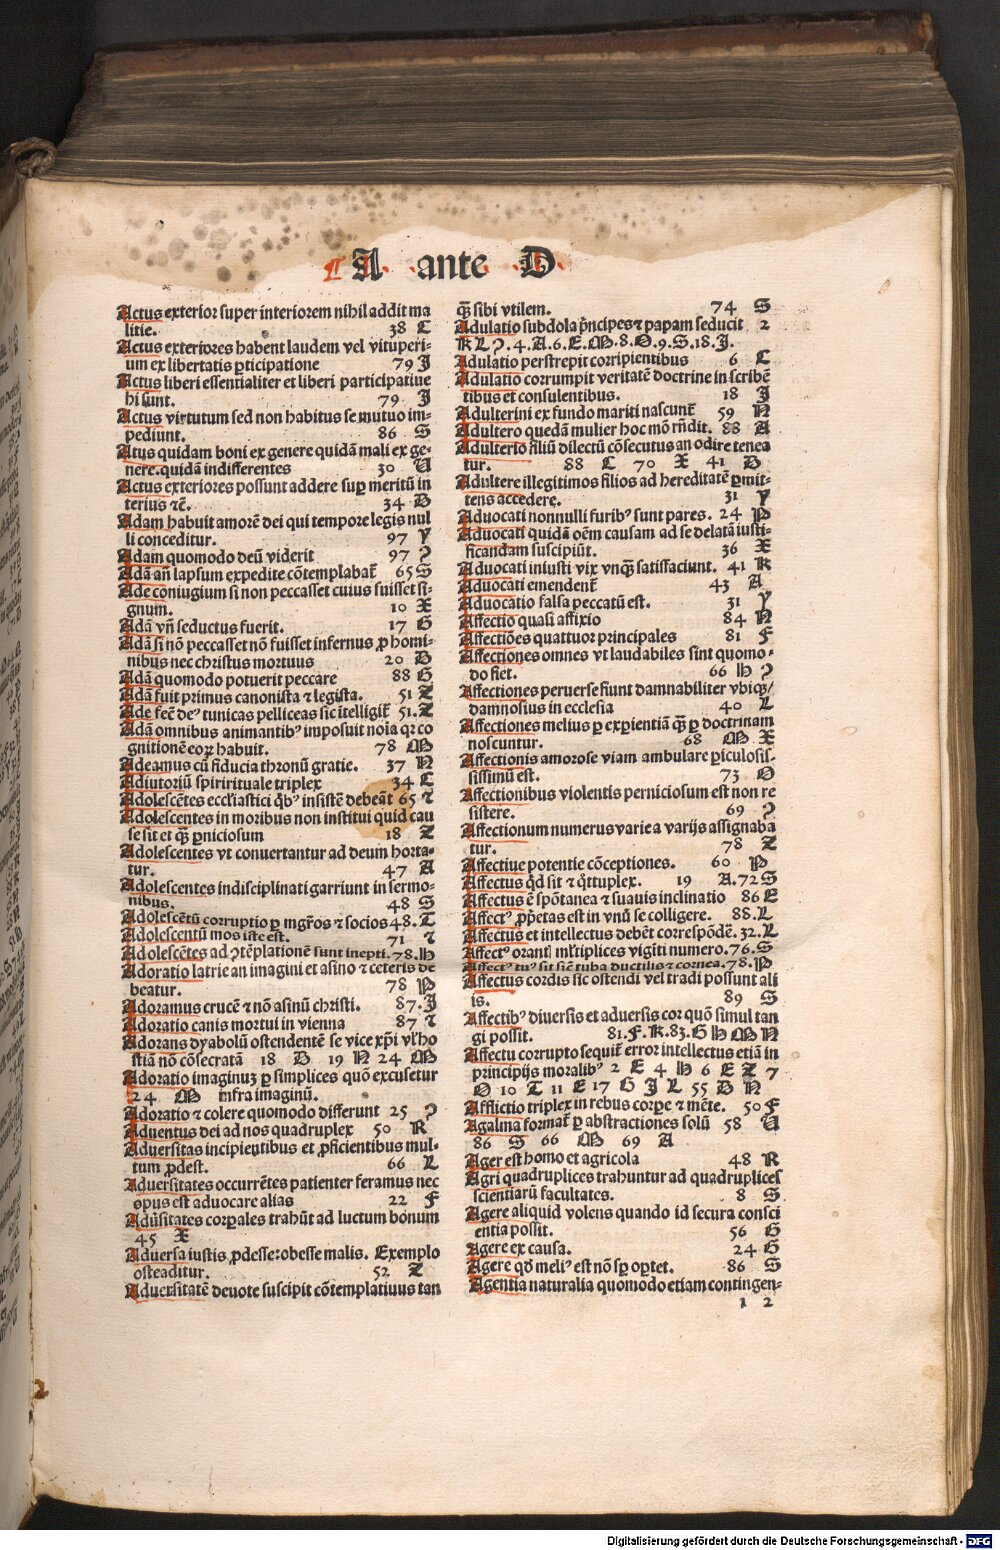 A ante D
Actus exterior super interiorem nihil addit ma
litie. 38 C
Actus exteriores habent laudem vel vituperi-
um ex libertatis ꝑticipatione 79 J
Actus liberi essentialiter et liberi participatiue
hi sunt. 79 J
Actus virtutum sed non habitus se mutuo im-
pediunt. 86 S
Atus quidam boni ex genere quidā mali ex ge-
nere.quidā indifferentes 30 U
Actus exteriores possunt addere suꝑ meritū in
terius ⁊c̄. 34 B
Adam habuit amorē dei qui tempore legis nul
li conceditur. 97 Y
Adam quomodo deū viderit 97 ?
Adā an̄ lapsum expedite cōtemplabat̄ 65 S
Ade coniugium si non peccasset cuius fuisset si-
gnum. 10 X
Adā vn̄ seductus fuerit. 17 G
Adā si nō peccasset nō fuisset infernus ꝓ homi-
nibus nec christus mortuus 20 B
Adā quomodo potuerit peccare 88 G
Adā fuit primus canonista ⁊ legista. 51 Z
Ade fec̄ deꝰ tunicas pelliceas sic ītelligit̄ 51.Z
Adā omnibus animantibꝰ imposuit noīa qr co
gnitionē eoꝝ habuit. 78 M
Adeamus cū fiducia thronū gratie. 37 N
Adiutoriū spirirituale triplex 34 C
Adolescētes eccl̄iastici q̄bꝰ insistē debeāt 65 ⁊
Adolescentes in moribus non institui quid cau
se sit et q̄ꝫ ꝑniciosum 18 Z
Adolescentes vt conuertantur ad deum horta-
tur. 47 A
Adolescentes indisciplinati garriunt in sermo-
nibus. 48 S
Adolescētū corruptio ꝑ mgr̄os ⁊ socios 48.T
Adolescentū mos iste est. 71 ⁊
Adolescētes ad ꝯtēplationē sunt inepti. 78.H
Adoratio latrie an imagini et asino ⁊ ceteris de
beatur. 78 P
Adoramus crucē ⁊ nō asinū christi. 87.J
Adoratio canis mortui in vienna 87 ⁊
Adorans dyabolū ostendentē se vice xp̄i vl̄ ho
stiā nō cōsecratā 18 D 19 N 24 M
Adoratio imaginuꝫ ꝑ simplices quō excusetur
24 M infra imaginū.
Adoratio ⁊ colere quomodo differunt 25 ?
Aduentus dei ad nos quadruplex 50 R
Aduersitas incipieutibus et ꝓficientibus mul-
tum ꝓdest. 66 L
Aduersitates occurrētes patienter feramus nec
opus est aduocare alias 22 F
Adūsitates corꝑales trahūt ad luctum bonum
45 X
Aduersa iustis ꝓdesse:obesse malis. Exemplo
osteaditur. 52 Z
Aduersitatē deuote suscipit cōtemplatiuus tan
q̄ꝫ sibi vtilem. 74 S
Adulatio subdola pn̄cipes ⁊ papam seducit 2
K L ?. 4. A. 6. E. M. 8. O. 9. S. 18. J.
Adulatio perstrepit corripientibus 6 C
Adulatio corrumpit veritatē doctrine in scribē
tibus et consulentibus. 18 J
Adulterini ex fundo mariti nascunt̄ 59 N
Adultero quedā mulier hoc mō rn̄dit. 88 A
Adulterio filiū dilectū cōsecutus an odire tenea
tur. 88 C 70 X 41 B
Adultere illegitimos filios ad hereditatē ꝑmit-
tens accedere. 31 Y
Aduocati nonnulli furibꝰ sunt pares. 24 P
Aduocati quidā oēm causam ad se delatā iusti-
ficandam suscipiūt. 36 X
Aduocati iniusti vix vnq̄ꝫ satisfaciunt. 41 K
Aduocati emendent̄ 43 A
Aduocatio falsa peccatū est. 31 Y
Affectio quasi affixio 84 N
Affectiōes quattuor principales 81 F
Affectiones omnes vt laudabiles sint quomo-
do fiet. 66 H ?
Affectiones peruerse fiunt damnabiliter vbiqꝫ/
damnosius in ecclesia 40 L
Affectiones melius ꝑ exꝑientiā q̄ꝫ ꝑ doctrinam
noscuntur. 68 M X
Affectionis amorose viam ambulare ꝑiculosis-
sissimū est. 73 O
Affectionibus violentis perniciosum est non re
sistere. 69 ?
Affectionum numerus varie a varijs assignaba
tur. 78 Z
Affectiue potentie cōceptiones. 60 P
Affectus q̄d sit ⁊ q̄ttuplex. 19 A.72 S
Affectus ē spōtanea ⁊ suauis inclinatio 86 E
Affectꝰ ꝓp̄etas est in vnū se colligere. 88.L
Affectus et intellectus debēt correspōdē. 32.L
Affectꝰ orant̄ ml̄tiplices vigīti numero. 76.S
Affectꝰ tuꝰ sit sic̄ tuba ductilis ⁊ cornea. 78.P
Affectus cordis sic ostendi vel tradi possunt ali
is. 89 S
Affectibꝰ diuersis et aduersis cor quō simul tan
gi possit. 81. F. K. 83. G H M N
Affectu corrupto sequit̄ error intellectus etiā in
principijs moralibꝰ 2 E 4 H 6 E Z 7
O 10 T 11 E 17 G J L 55 B N
Afflictio triplex in rebus corꝑe ⁊ mēte. 50 F
Agalma format̄ ꝑ abstractiones solū 58 U
86 S 66 M 69 A
Ager est homo et agricola 48 R
Agri quadruplices trahuntur ad quadruplices
scientiarū facultates. 8 S
Agere aliquid volens quando id secura consci
entia possit. 56 G
Agere ex causa. 24 G
Agere qd̄ meliꝰ est nō sꝑ optet. 86 S
Agentia naturalia quomodo etiam contingen-
1 2
Digitalisierung gefördert durch die Deutsche Forschungsgemeinschaft - DFG